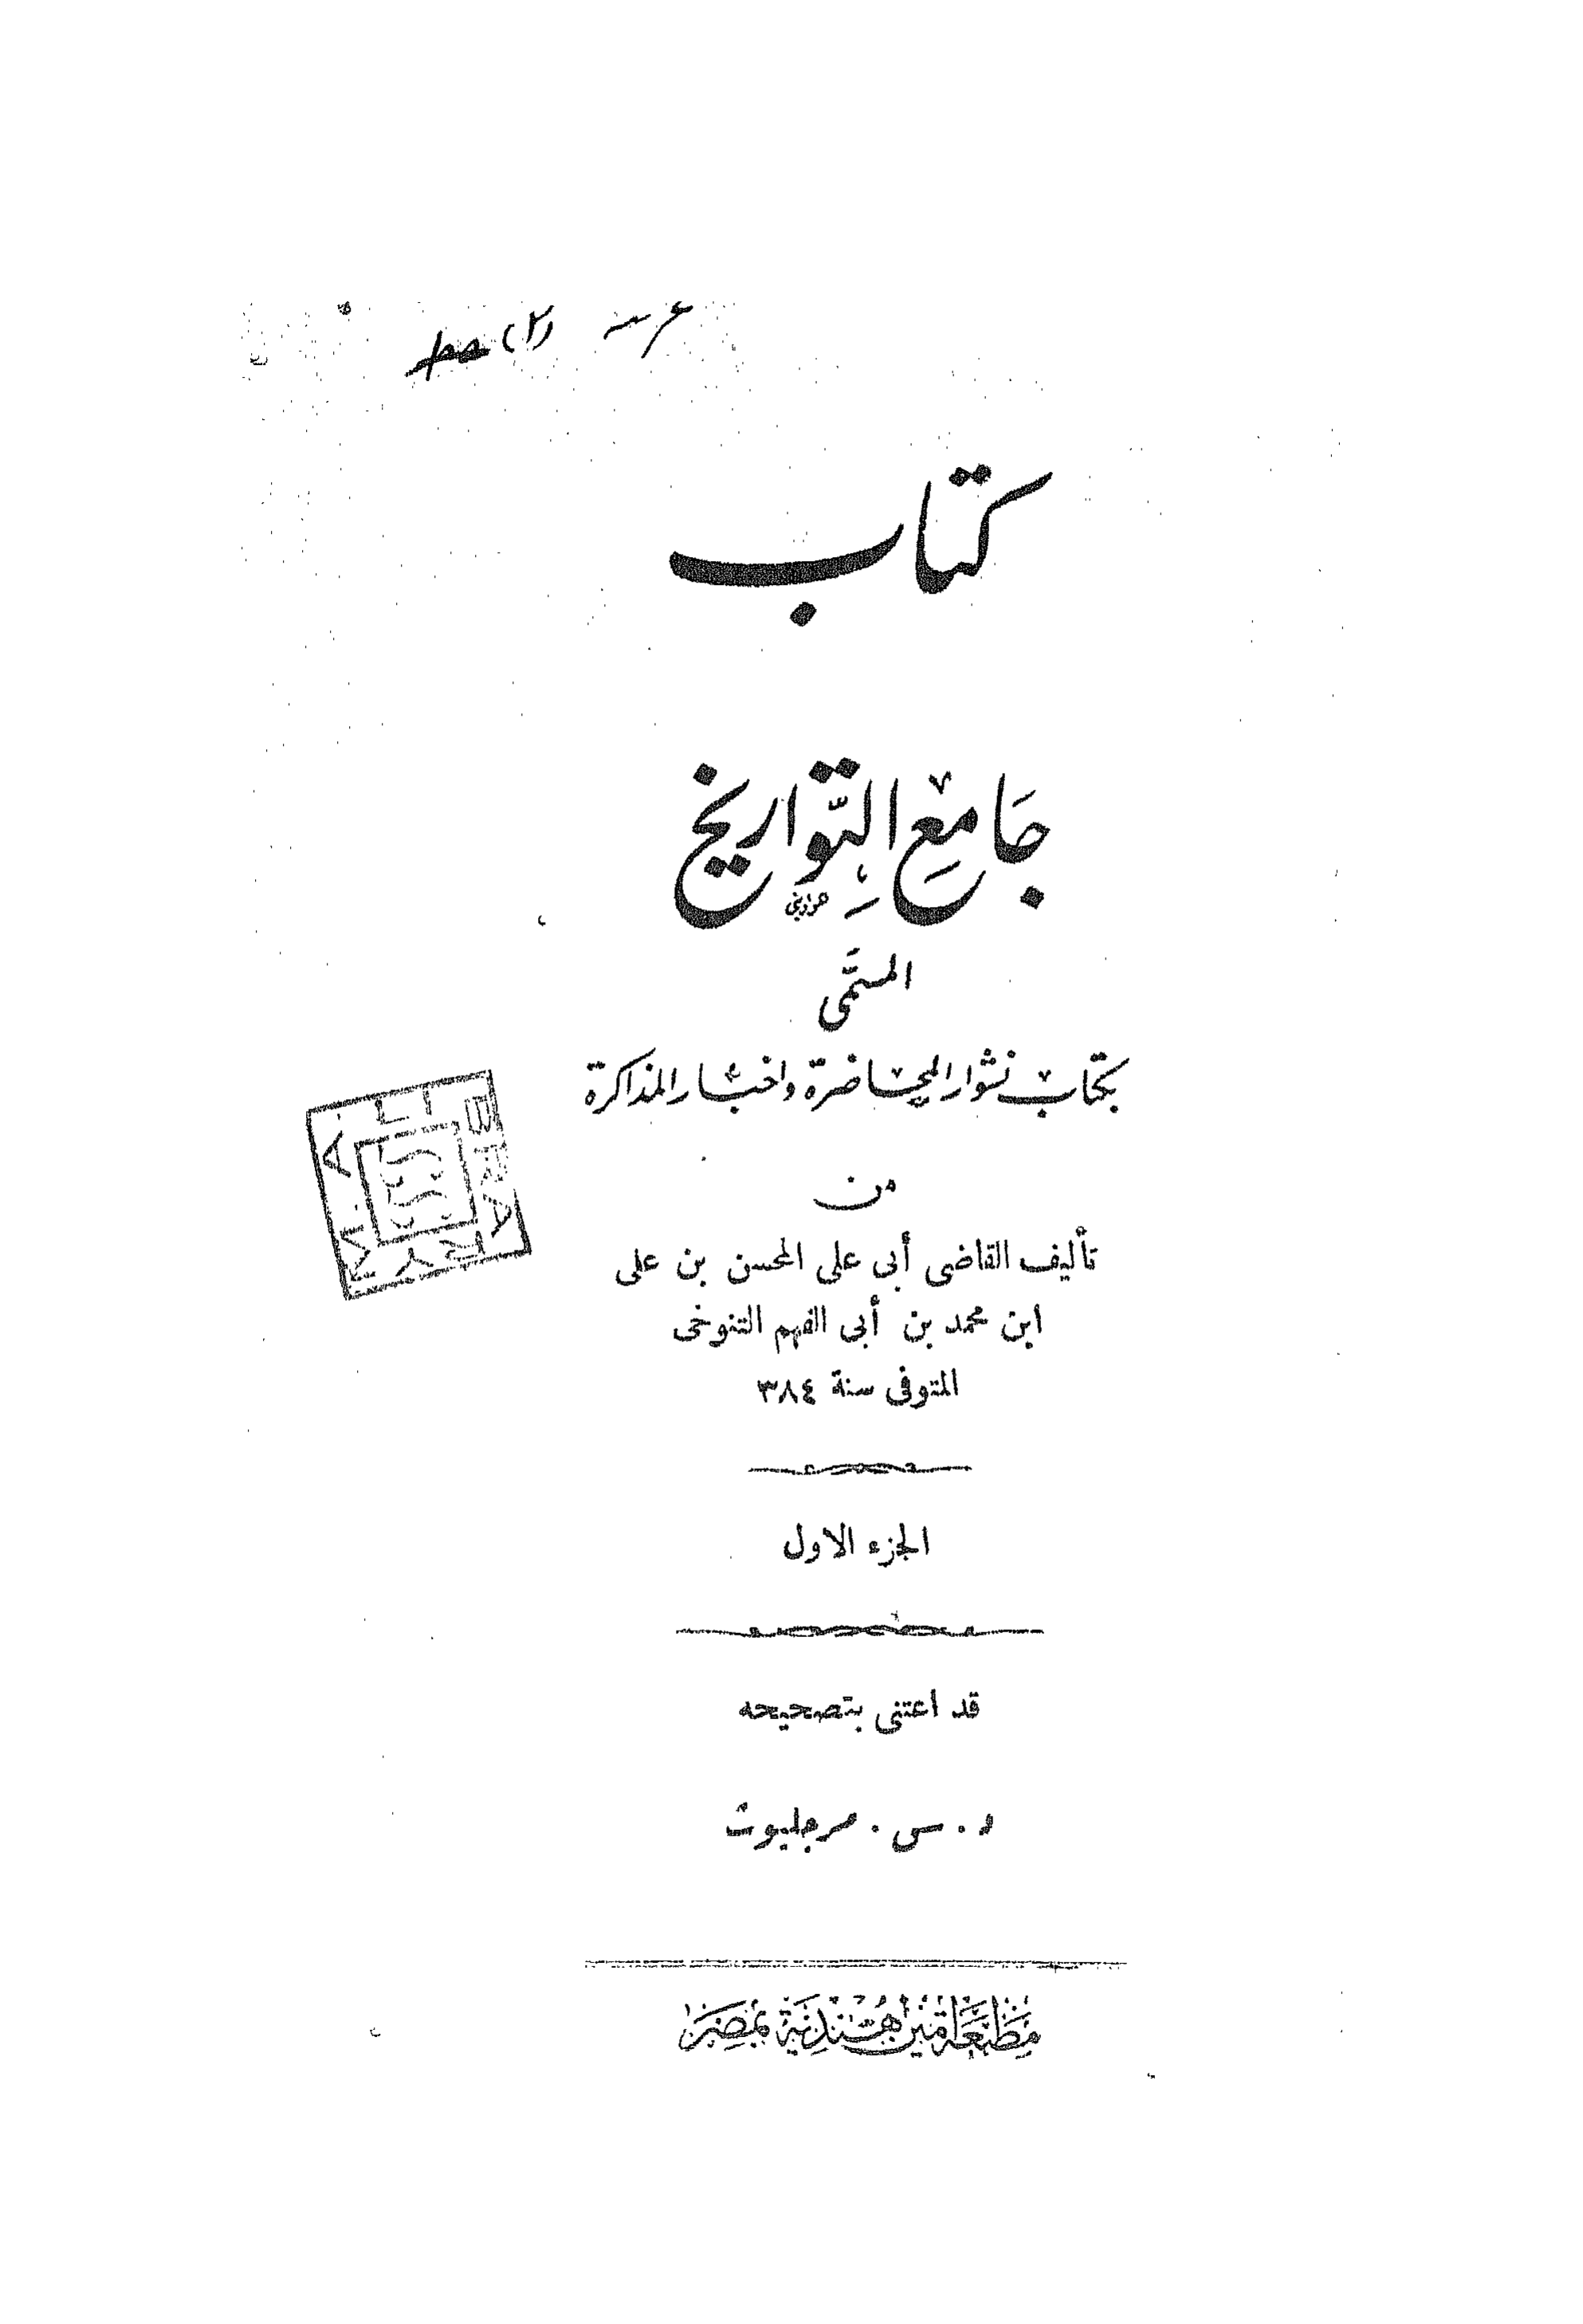 (٢)
كتاب
جَامِعِ التَّوَاريخ
هواويني
المسَمَّى
بكتاب نشوار المحاضرة واخبار المذاكرة
من
تأليف القاضى أبى على المحسن بن على
ابن محمد بن أبى الفهم التنوخى
المتوفى سنة ٣٨٤
الجزء الاول
قد اعتنى بتصحيحه
د . س . مرجليوث
مَطبَعَة امين هندية بمصر